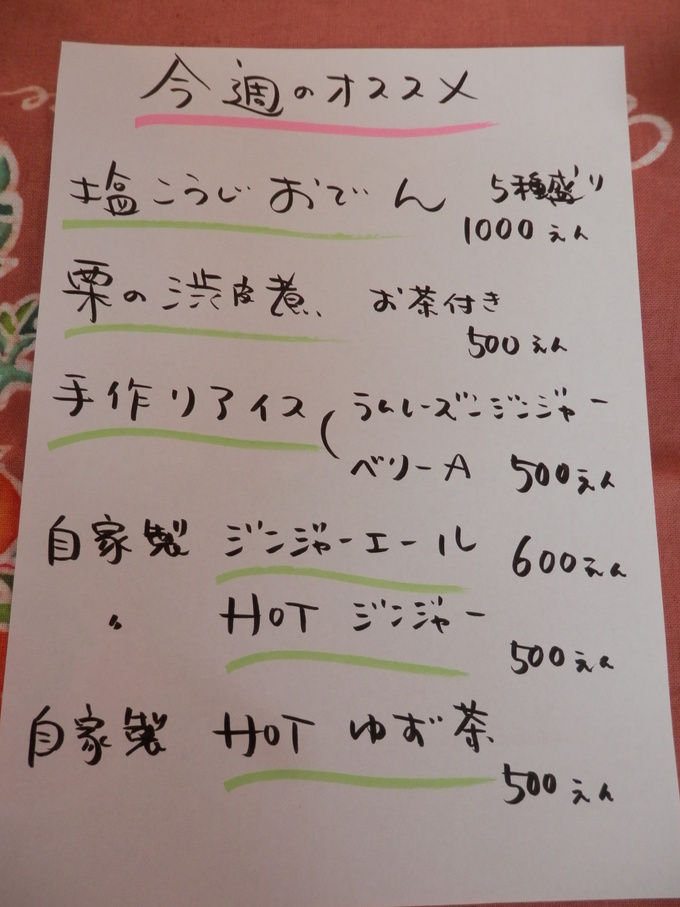 今週のオススメ
塩こうじおでん 5種盛り
1000えん
栗の渋皮煮 お茶付き
500えん
手作りアイス(ラムレーズンジンジャー
ベリーA 500えん
自家製 ジンジャーエール 600えん
〃 HOT ジンジャー
500えん
自家製 HOT ゆず茶
500えん